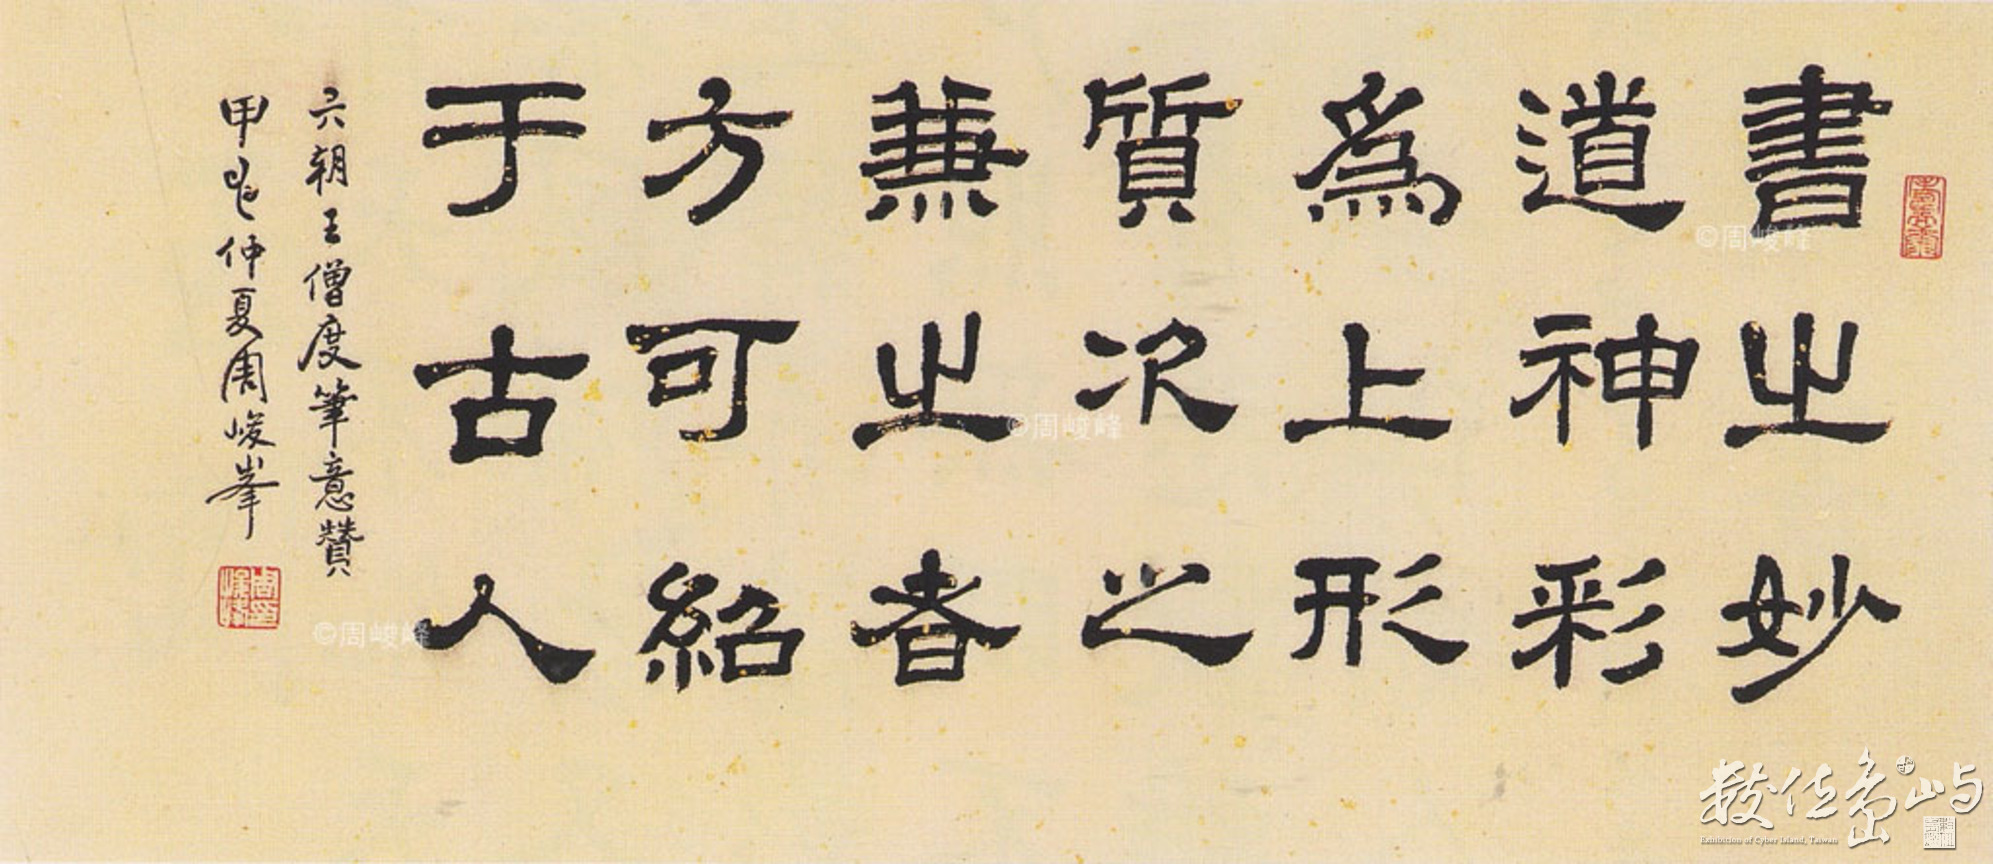 書之妙
道神彩
為上形
質次之
兼之者
方可紹
于古人
六朝王僧虔筆意贊
仲夏周峻峯
©周峻峰
©周峻峰
©周峻峰
數位島嶼
Exhibition of Cyber Island, Taiwan